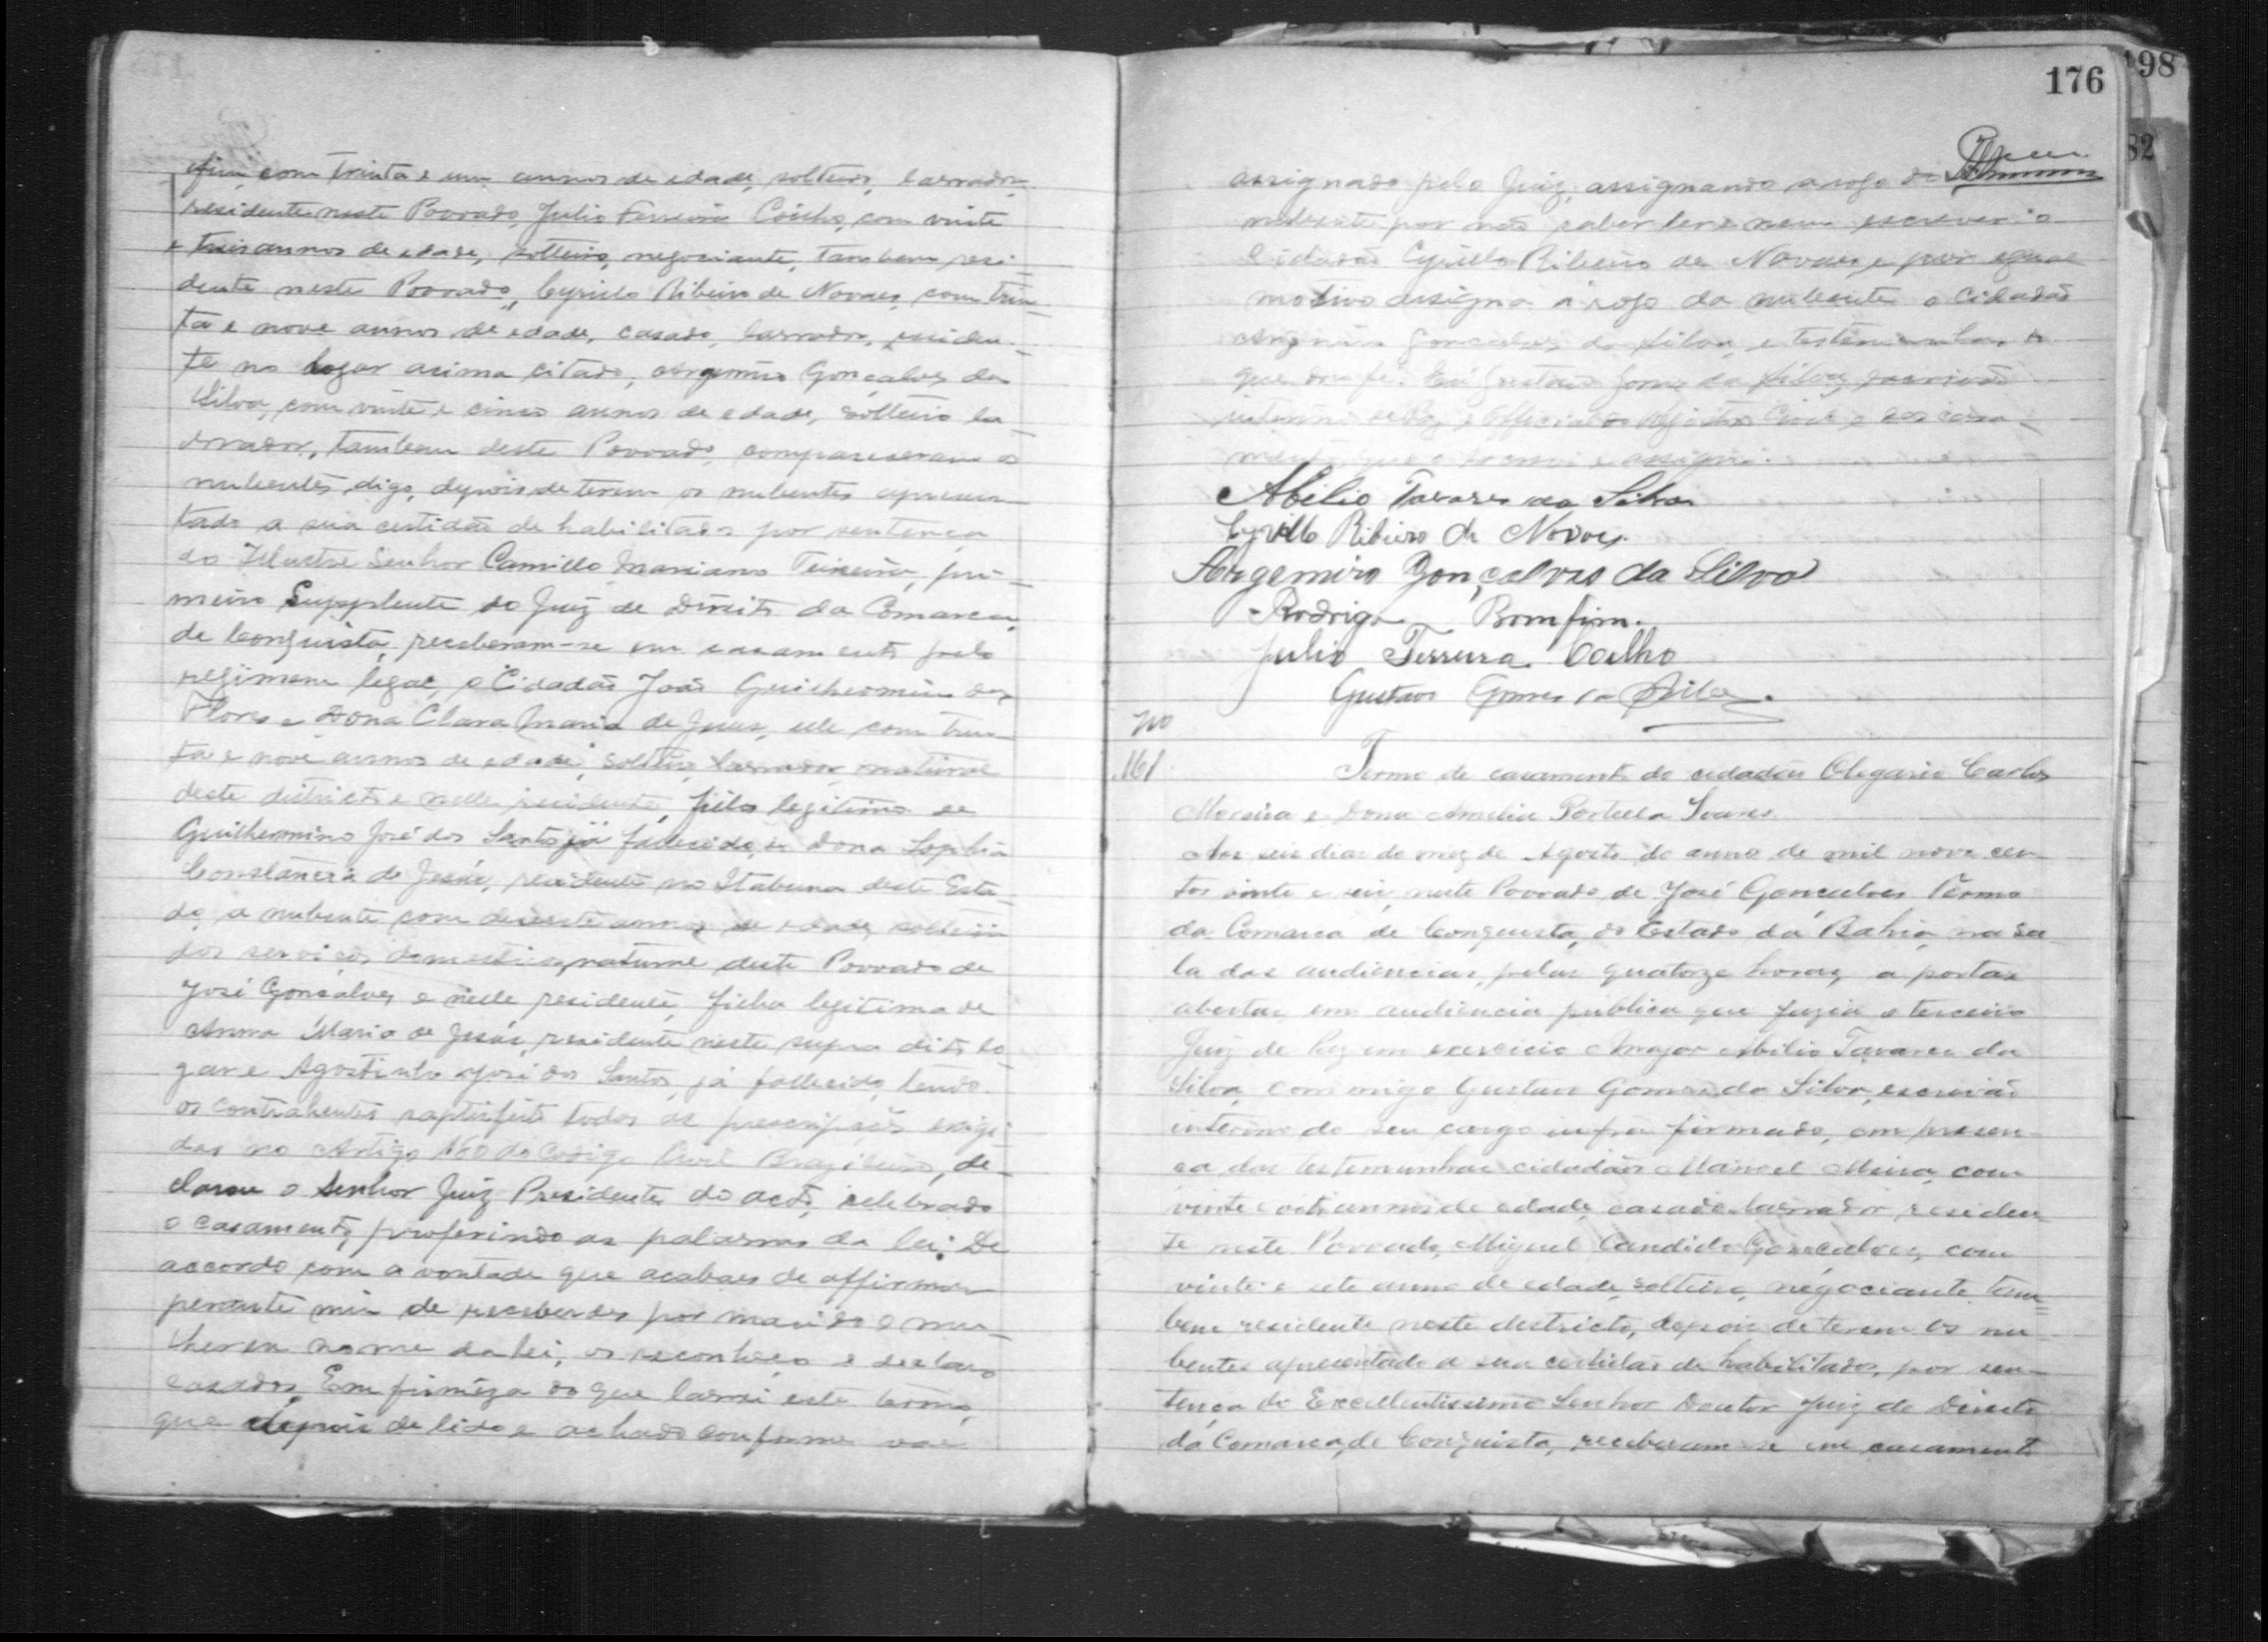 fim, com trinta e um annos de edade, solteiro, lavrador,
residente neste Povoado, Julio Ferreira Coelho, com vinte
e treis annos de edade, solteiro, negociante, tambem resi-
dente neste Povoado, Cyrillo Ribeiro de Novaes, com trin-
ta e nove annos de edade, casado, lavrador, residen-
te no logar acima citado, Argemiro Gonçalves da
Silva, com vinte e cinco annos de edade, solteiro la-
vrador, tambem deste Povoado, compareseram os
nubentes, digo, depois de terem os nubentes apresen-
tado a sua certidão de habilitados por sentença
do Illustre Senhor Camillo Marciano Teixeira, pri-
meiro Supplente do Juiz de Direito da Comarca
de Conquista, receberam-se em casamento pelo
regimem legal, o Cidadão João Guilhermino das
Flores e Dona Clara Maria de Jesus, elle com trin-
ta e nove annos de edade, solteiro, lavrador, natural
deste districto e nelle residente, filho legitimo de
Guilhermino José dos Santos já fallecido, e Dona Sophia
Constancia de Jesús, residente no Itabuna deste Esta-
do, a nubente com desesete annos de edade, solteira
dos serviços domesticos, natural deste Povoado de
José Gonçalves, e nelle residente, filha legitima de
Anna Maria de Jesús, residente neste supra dito lo-
gar e Agostinho José dos Santos, já fallecido, tendo
os contrahentes satisfeito todos as prescripções exigi-
das no Artigo 180 do Codigo Civil Brazileiro, de-
clarou o Senhor Juiz Presidente do acto, celebrado
o casamento, proferindo as palavras da lei: De
accordo com a vontade que acabaes de affirmar
perante mim de receberdes por marido e mu-
lher, eu nome da lei, os reconheço e declaro
casados. Em firmeza do que lavrei este termo,
que depois de lido e achado conforme vae
176
198
82
assignado pelo Juiz, assignando a rogo do
nubente por não saber ler e nem escrever o
Cidadão Cyrillo Ribeiro de Novaes, e por egual
motivo assigna á rogo da nubente o Cidadão
Argemiro Gonçalves da Silva, e testemunhas, do
que dou fé. Eu Gustavo Gomes da Silva, escrivão
interino de Paz e Official do Registro Civil e dos casa-
mentos que o escrevi e assigno.
Abilio Tavares da Silva
Cyrillo Ribeiro de Novaes.
Argemiro Gonçalves da Silva
Rodrigo Bomfim.
Julio Ferreira Coelho
Gustavo Gomes da Silva.
No
161
Termo de casamento do cidadão Olegario Carlos
Moreira e Dona Amelia Portella Soares.
Aos seis dias do mez de Agosto do anno de mil nove cen-
tos vinte e seis, neste Povoado de José Gonçalves Termo
da Comarca de Conquista, do Estado da Bahia, na sa-
la das audiencias, pelas quatorze horas, a portas
abertas, em audiencia publica que fazia o terceiro
Juiz de Paz em exercicio Major Abilio Tavares da
Silva, commigo Gustavo Gomes da Silva, escrivão
interino do seu cargo infra firmado, em presen-
ça das testemunhas cidadãos Manoel Meira, com
vinte e oito annos de edade, casado lavrador, residen-
te neste Povoado, Miguel Candido Gonçalves, com
vinte e sete anno de edade, solteiro, negociante, tam-
bem residente neste districto, depois de terem os nu-
bentes apresentado a sua certidão de habilitados, por sen-
tença do Excellentissimo Senhor Doutor Juiz de Direito
da Comarca de Conquista, receberam-se em casamento